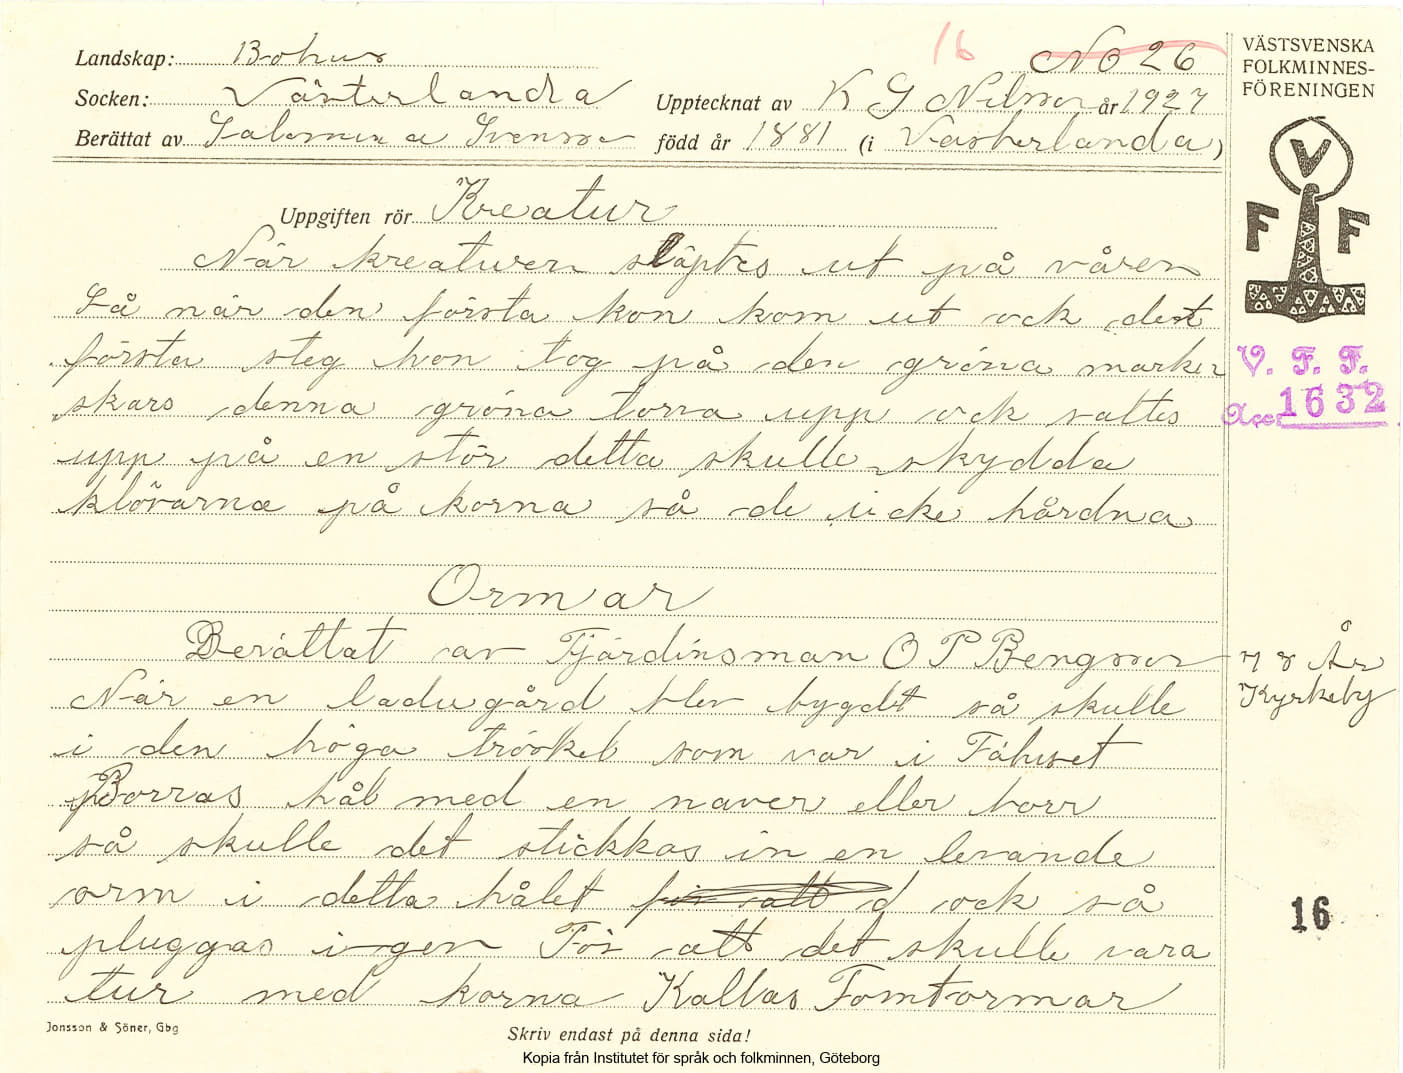 16 No 26
Landskap: Bohus
Socken: Västerlanda Upptecknat av K G Nilsson år 1927
Berättat av Salomina Svensson född år 1881 (i Västerlanda)
VÄSTSVENSKA
FOLKMINNES-
FÖRENINGEN
V
F F
V. F. F.
Acc. 1632
Uppgiften rör Kreatur
När kreaturen släptes ut på våren
Så når den första kon kom ut ock det
första steg hon tog på den gröna marken
skars denna gröna torva upp ock sattes
upp på en stör detta skulle skydda
klövarna på korna så de icke hårdna
Ormar
Berättat av Fjärdinsman O P Bengsson 78 År
Kyrkeby
När en ladugård blev bygdt så skulle
i den höga tröskel som var i Fähuset
Borras hål med en naver eller borr
så skulle det stickkas in en levande
orm i detta hålet för att d ock så
pluggas i gen För att det skulle vara
tur med korna Kallas Tomtormar
16
Jonsson & Söner, Gbg
Skriv endast på denna sida!
Kopia från Institutet för språk och folkminnen, Göteborg